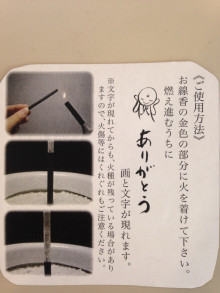 《ご使用方法》
お線香の金色の部分に火を着けて下さい。
燃え進むうちに
ありがとう
画と文字が現れます。
※文字が現れてからも、火種が残っている場合があり
ますので、火傷等にはくれぐれもご注意ください。